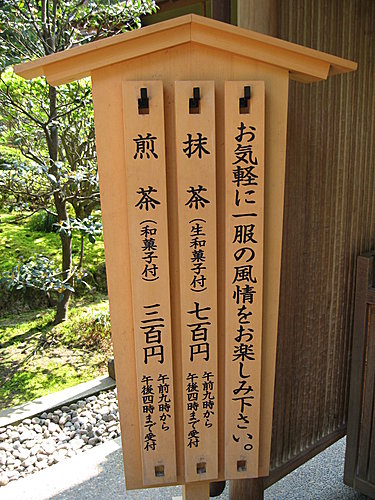 お気軽に一服の風情をお楽しみ下さい。
抹茶(生和菓子付)七百円
午前九時から
午後四時まで受付
煎茶(和菓子付)三百円
午前九時から
午後四時まで受付